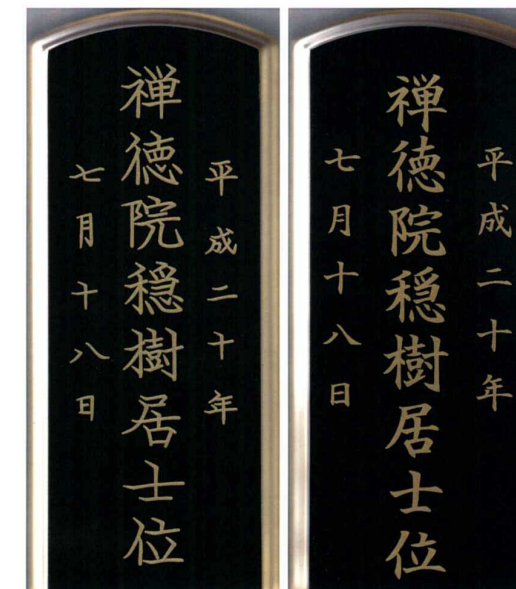 平成二十年
禅徳院穏樹居士位
七月十八日
平成二十年
禅徳院穏樹居士位
七月十八日